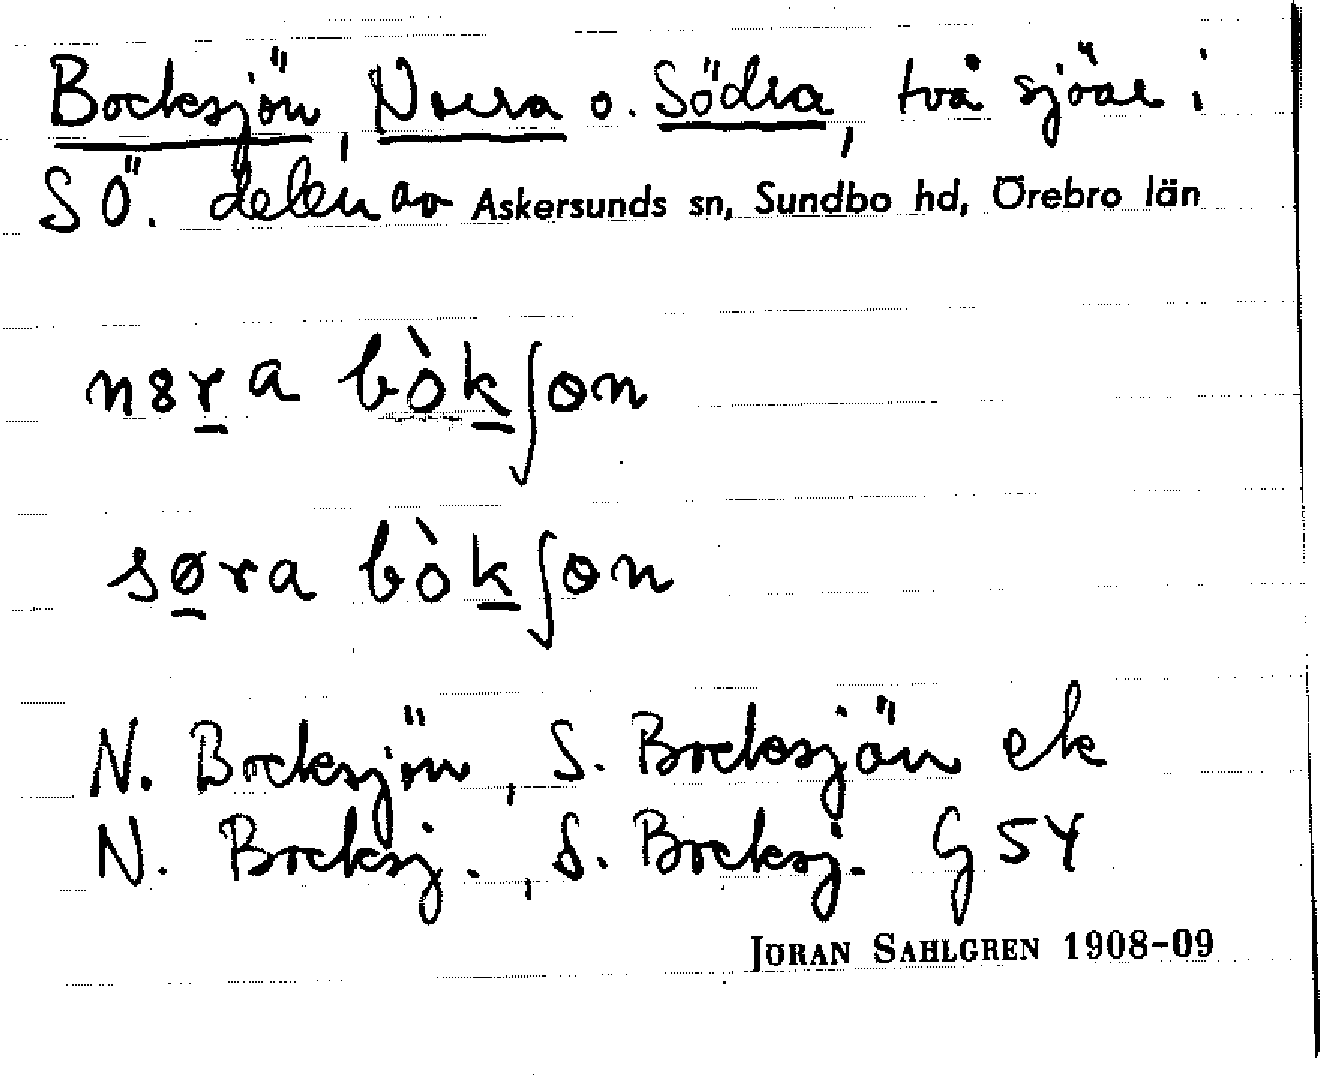 Bocksjön, Norra o. Södra, två sjöar i
SÖ. delen av Askersunds sn, Sundbo hd, Örebro län
n8ra bòkʃɵn
søra bòkʃɵn
N. Bocksjön, S. Bocksjön ek
N. Bocksj., S. Bocksj. G 54
JÖRAN SAHLGREN 1908-09